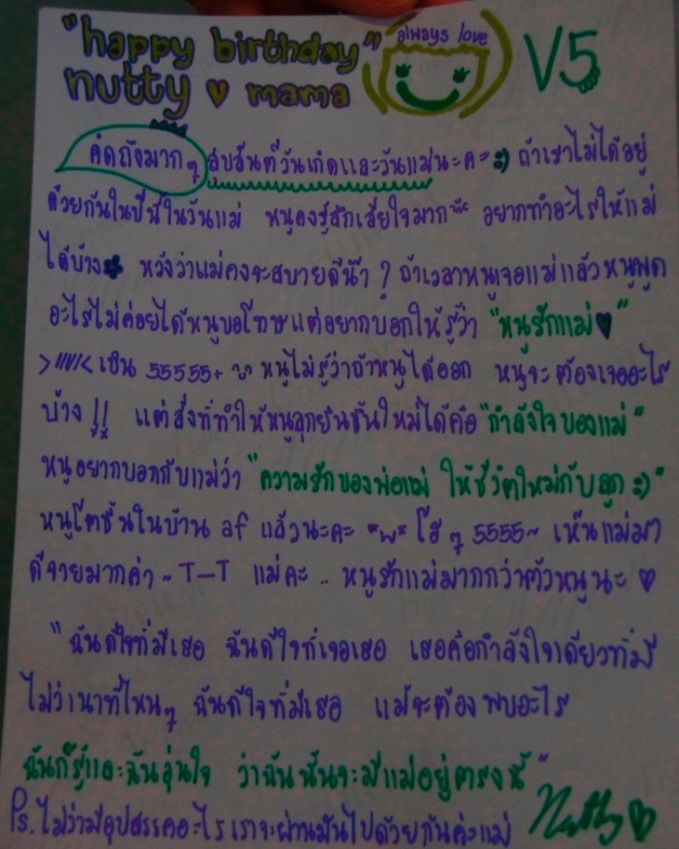 "happy birthday" always love V5
nutty ♥ mama
คิดถึงมากๆ สุขสันต์วันเกิดและวันแม่นะคะ =) ถ้าเราไม่ได้อยู่
ด้วยกันในปีนี้ในวันแม่ หนูคงรู้สึกเสียใจมาก อยากทำอะไรให้แม่
ได้บ้าง หวังว่าแม่คงจะสบายดีน๊า ? ถ้าเวลาหนูเจอแม่แล้วหนูพูด
อะไรไม่ค่อยได้หนูขอโทษแต่อยากบอกให้รู้ว่า "หนูรักแม่♥"
>/////< เขิน 55555+ หนูไม่รู้ว่าถ้าหนูได้ออก หนูจะต้องเจออะไร
บ้าง !! แต่สิ่งที่ทำให้หนูลุกยืนขึ้นใหม่ได้คือ "กำลังใจของแม่"
หนูอยากบอกกับแม่ว่า "ความรักของพ่อแม่ ให้ชีวิตใหม่กับลูก =)"
หนูโตขึ้นในบ้าน af แล้วนะคะ *w* โฮๆ 5555~ เห็นแม่มา
ดีใจมากค่า ~ T-T แม่คะ .. หนูรักแม่มากกว่าตัวหนูนะ ♡
" ฉันดีใจที่มีเธอ ฉันดีใจที่เจอเธอ เธอคือกำลังใจเดียวที่มี
ไม่ว่านาทีไหนๆ ฉันดีใจที่มีเธอ แม้จะต้องพบอะไร
ฉันก็รู้และฉันอุ่นใจ ว่าฉันนั้นจะมีแม่อยู่ตรงนี้ "
Ps. ไม่ว่ามีอุปสรรคอะไรเราจะผ่านมันไปด้วยกันค่ะแม่ Nutty ♡